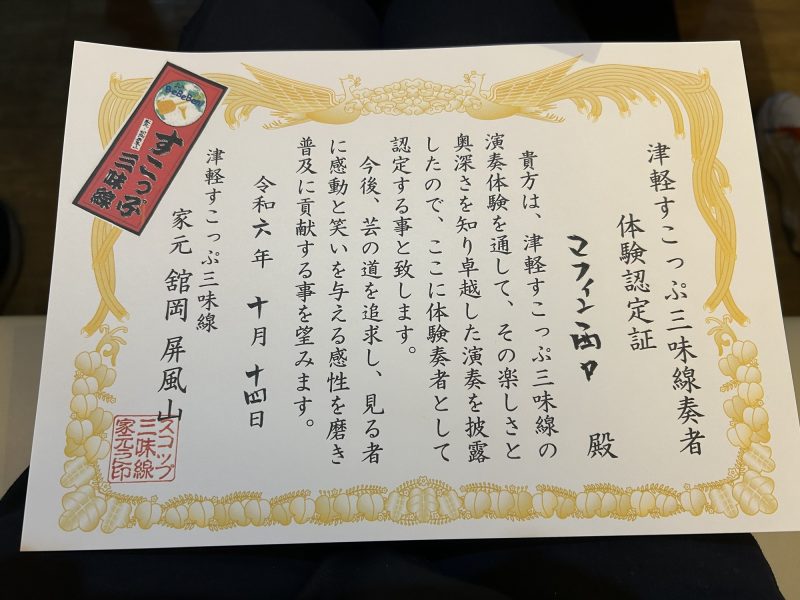 津軽すこっぷ三味線奏者
体験認定証
マフィン西口 殿
貴方は、津軽すこっぷ三味線の
演奏体験を通して、その楽しさと
奥深さを知り卓越した演奏を披露
したので、ここに体験奏者として
認定する事と致します。
今後、芸の道を追求し、見る者
に感動と笑いを与える感性を磨き
普及に貢献する事を望みます。
令和六年 十月 十四日
津軽すこっぷ三味線
家元 舘岡 屏風山
スコップ
三味線
家元之印
BeBeBen
すこっぷ
三味線